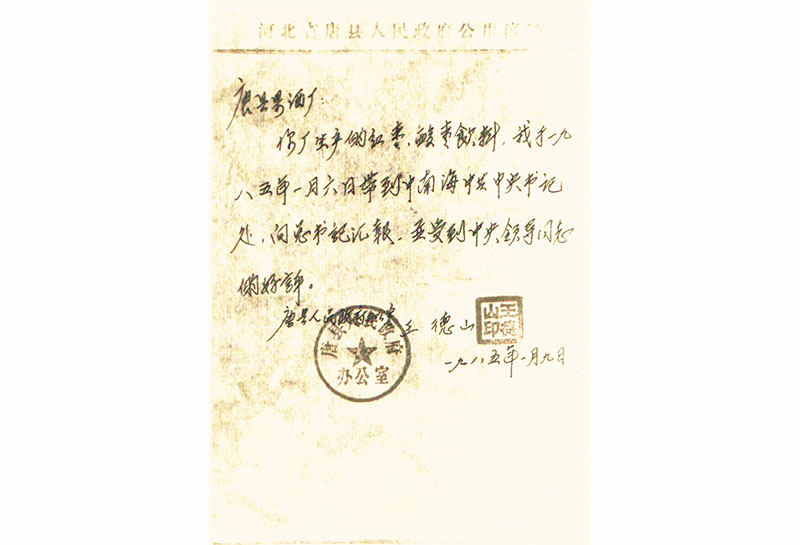 河北省唐县人民政府公用信笺
唐县果酒厂:
你厂生产的红枣、酸枣飲料,我于一九
八五年一月六日带到中南海中共中央书记
处,向总书記汇報、并受到中央領导同志
的好評。
唐县人民政府办公室 王德山
王德山印
唐县人民政府
办公室
一九八五年一月九日